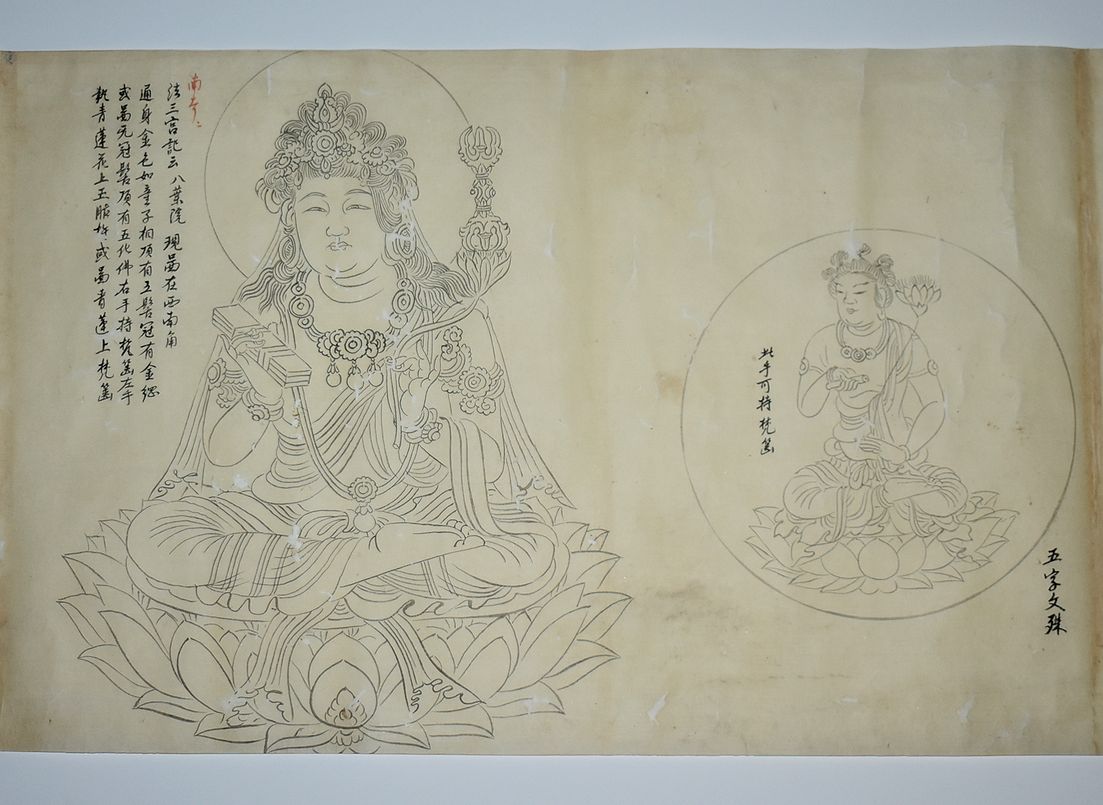 五字文殊
此手可持梵篋
法三宮記云八葉院現啚在西南角
通身金色如童子相頂有五髻冠有金
或啚无冠髻頂有五化佛右手持梵篋左手
執青蓮花上五股杵或啚青蓮上梵篋